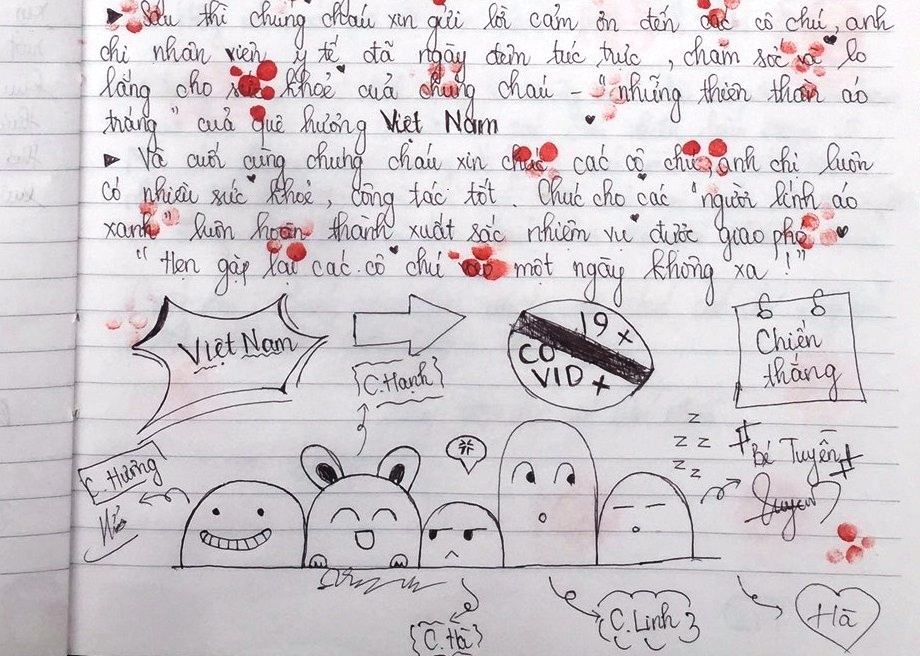 Sau thì chúng cháu xin gửi lời cảm ơn đến các cô chú, anh
chị nhân viên y tế đã ngày đêm túc trực, chăm sóc và lo
lắng cho sức khoẻ của chúng cháu - "những thiên thần áo
trắng" của quê hương Việt Nam
Và cuối cùng chúng cháu xin chúc các cô chú, anh chị luôn
có nhiều sức khoẻ, công tác tốt. Chúc cho các "người lính áo
xanh" luôn hoàn thành xuất sắc nhiệm vụ được giao phó
"Hẹn gặp lại các cô chú vào một ngày không xa!"
Việt Nam
19 +
CO
VID +
Chiến
thắng
C. Hạnh
C. Hương
z
z z z
z z
# Bé Tuyền #
C. Hà
C. Linh
Hà